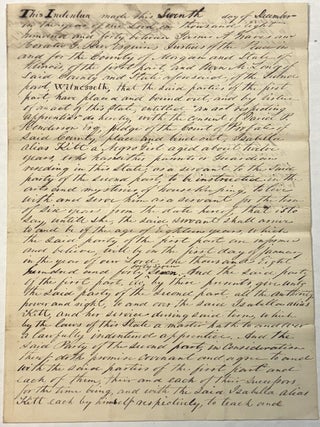 This Indenture made this Seventh day of December
in the year of our Lord one thousand eight
hundred and forty between James A. Graves and
Horatio G. Justices of the Peace in
and for the County of Morgan and State of
Illinois of the first part and Steven A. Long of
said County and State aforesaid, of the Second
part, Witnesseth, that the said parties of the first
part have placed and bound out and by virtue
of an act of this State, entitled "an act respecting
Apprentices" do hereby, with the consent of James F.
Henderson Esq. Judge of the Court of Probate of
Said County place and bind out Isabella
alias Kitt a Negro Girl aged about twelve
years, who has neither parents or Guardians
residing in this State, as a servant to the Said
party of the second part to be instructed in the
arts and mysteries of house keeping to live
with and serve him as a servant for the term
of Six years from the date hereof that is to
say, until she the said servant shall arrive
to and be of the age of Eighteen years, which
the said party of the first part are informed
and believe, will be on the first day of January
in the year of our Lord One thousand eight
hundred and forty seven. And the said party
of the first part, do by these presents, give unto
the said party of the second part all the authority
power and right, to and over the said Isabella alias
Kitt, and her service during said term, which
by the laws of this State a master hath to and over
a lawfully indentured apprentice. And the
Said Party of the second part, in Consideration
thereof doth promise Covenant and agree to and
with the said parties of the first part and
each of them, their and each of their Successors
for the time being, and with the said Isabella alias
Kitt each by himself respectively, to teach and